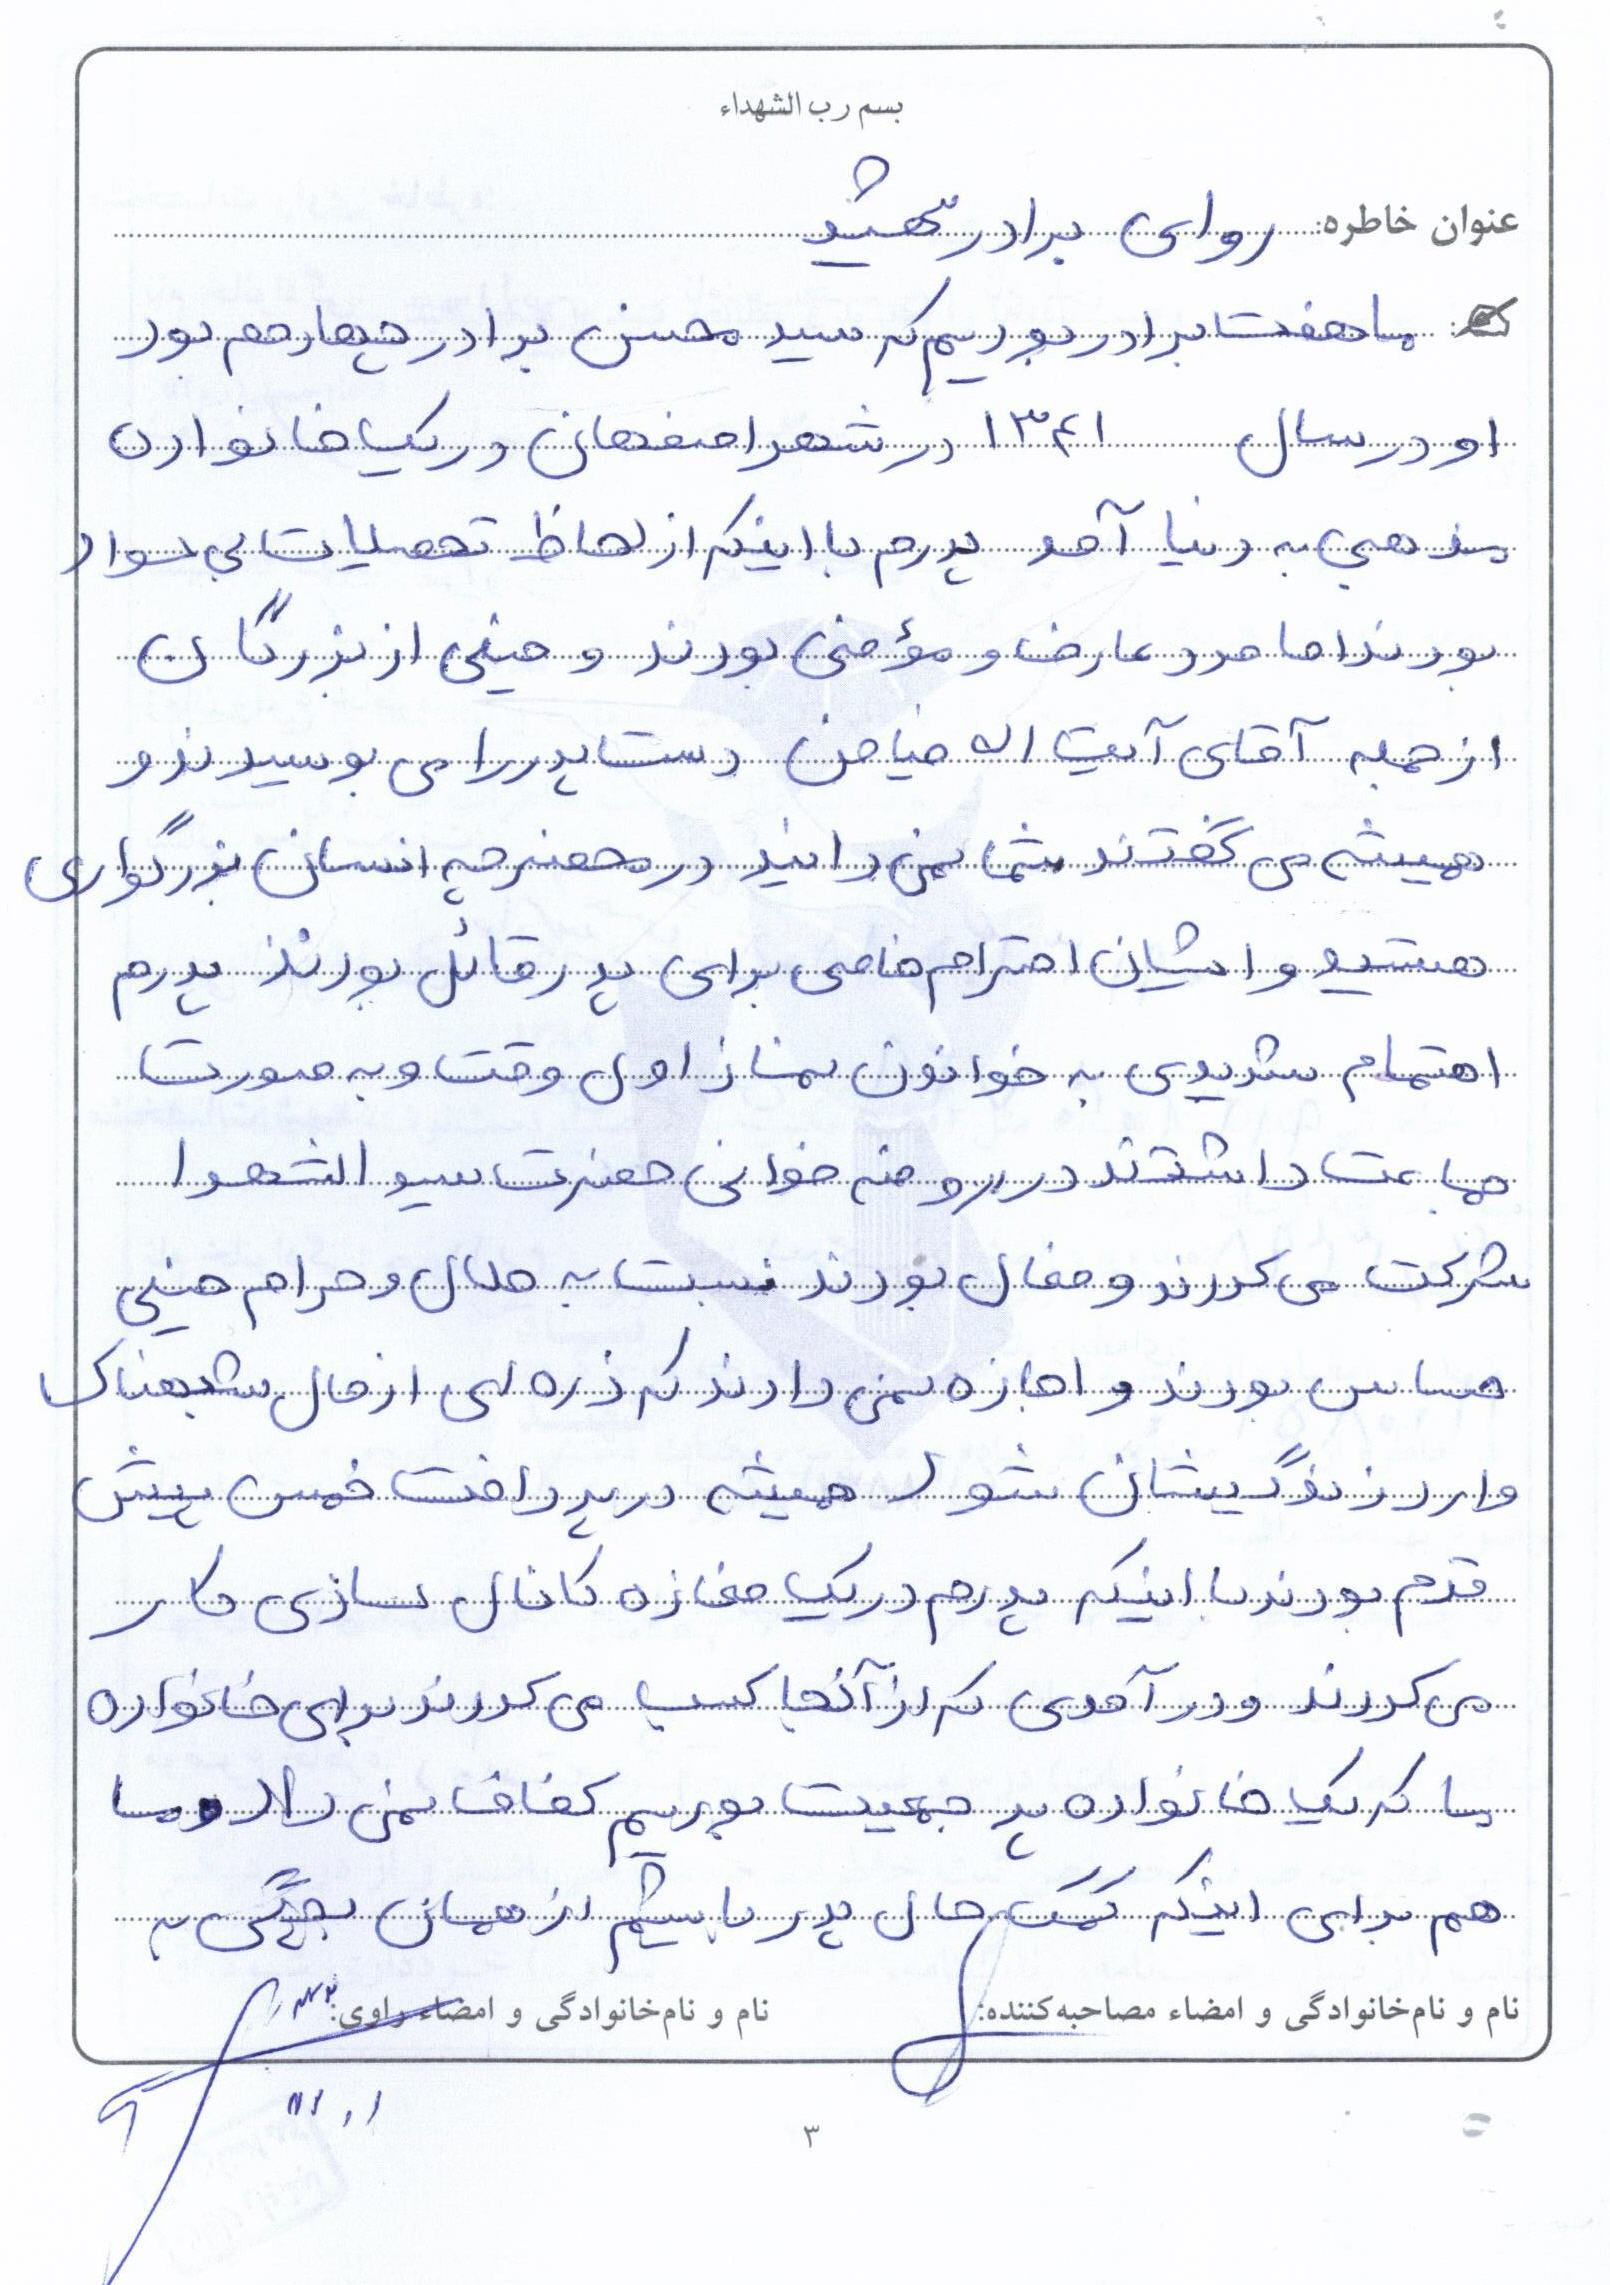 بسم رب الشهداء
عنوان خاطره: روای برادر شهید
ما هفت برادر بودیم که سید محسن برادر چهارم بود
او در سال ۱۳۴۱ در شهر اصفهان در یک خانواده
مذهبی به دنیا آمد پدرم با اینکه از لحاظ تحصیلات بی سواد
بودند اما مرد عارف و مؤمنی بودند و خیلی از بزرگان
از جمله آقای آیت اله ضیامن دست پدر را می بوسیدند و
همیشه می گفتند شما نمی دانید در محضر چه انسان بزرگواری
هستید و ایشان احترام خاصی برای پدر قائل بودند پدرم
اهتمام شدیدی به خواندن نماز اول وقت و به صورت
جماعت داشتند در روضه خوانی حضرت سید الشهدا
شرکت می کردند و فعال بودند نسبت به حلال و حرام خیلی
حساس بودند و اجازه نمی دادند که ذره ای از مال شبهناک
وارد زندگیشان شود همیشه در پرداخت خمس پیش
قدم بودند با اینکه پدرم در یک مغازه کانال سازی کار
می کردند و درآمدی که از آنجا کسب می کردند برای خانواده
ما که یک خانواده پر جمعیت بودیم کفاف نمی داد و ما
هم برای اینکه کمک حال پدر باشیم از همان بچگی به
نام و نام‌خانوادگی و امضاء مصاحبه‌کننده: نام و نام‌خانوادگی و امضاء راوی:
۳